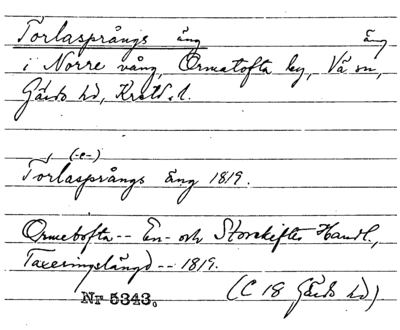 Torlasprångs äng äng
i Norre vång, Ormatofta by, Vä sn,
Gärds hd, Krstds. l.
(-e-)
Torlasprångs äng 1819.
Ormetofta -- En- och Storskiftes Handl.,
Taxeringslängd -- 1819.
Nr 5343. (C 18 Gärds hd)